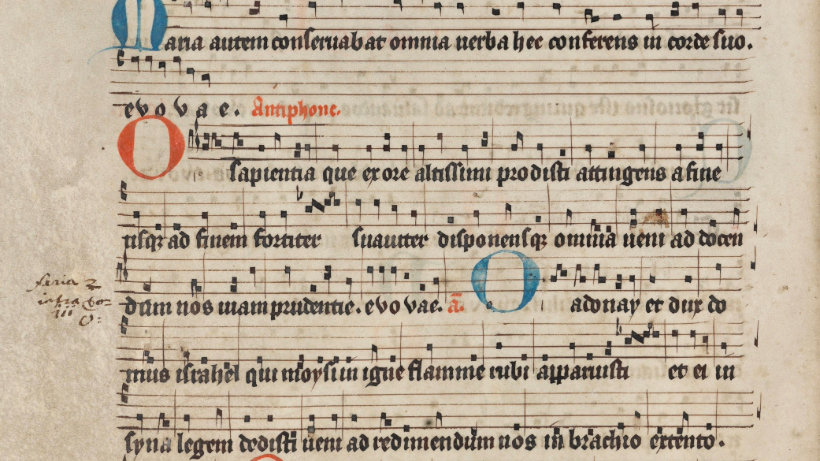 Maria autem conseruabat omnia uerba hec conferens in corde suo.
evovae. Antiphone.
O sapientia que ex ore altissimi prodisti attingens a fine
usque ad finem fortiter suauiter disponensque omnia ueni ad docen
dum nos uiam prudentie. evovae. a. O adonay et dux do
mus israhel qui moysi in igne flamme rubi apparuisti et ei in
syna legem dedisti ueni ad redimendum nos in brachio extento.
feria 2